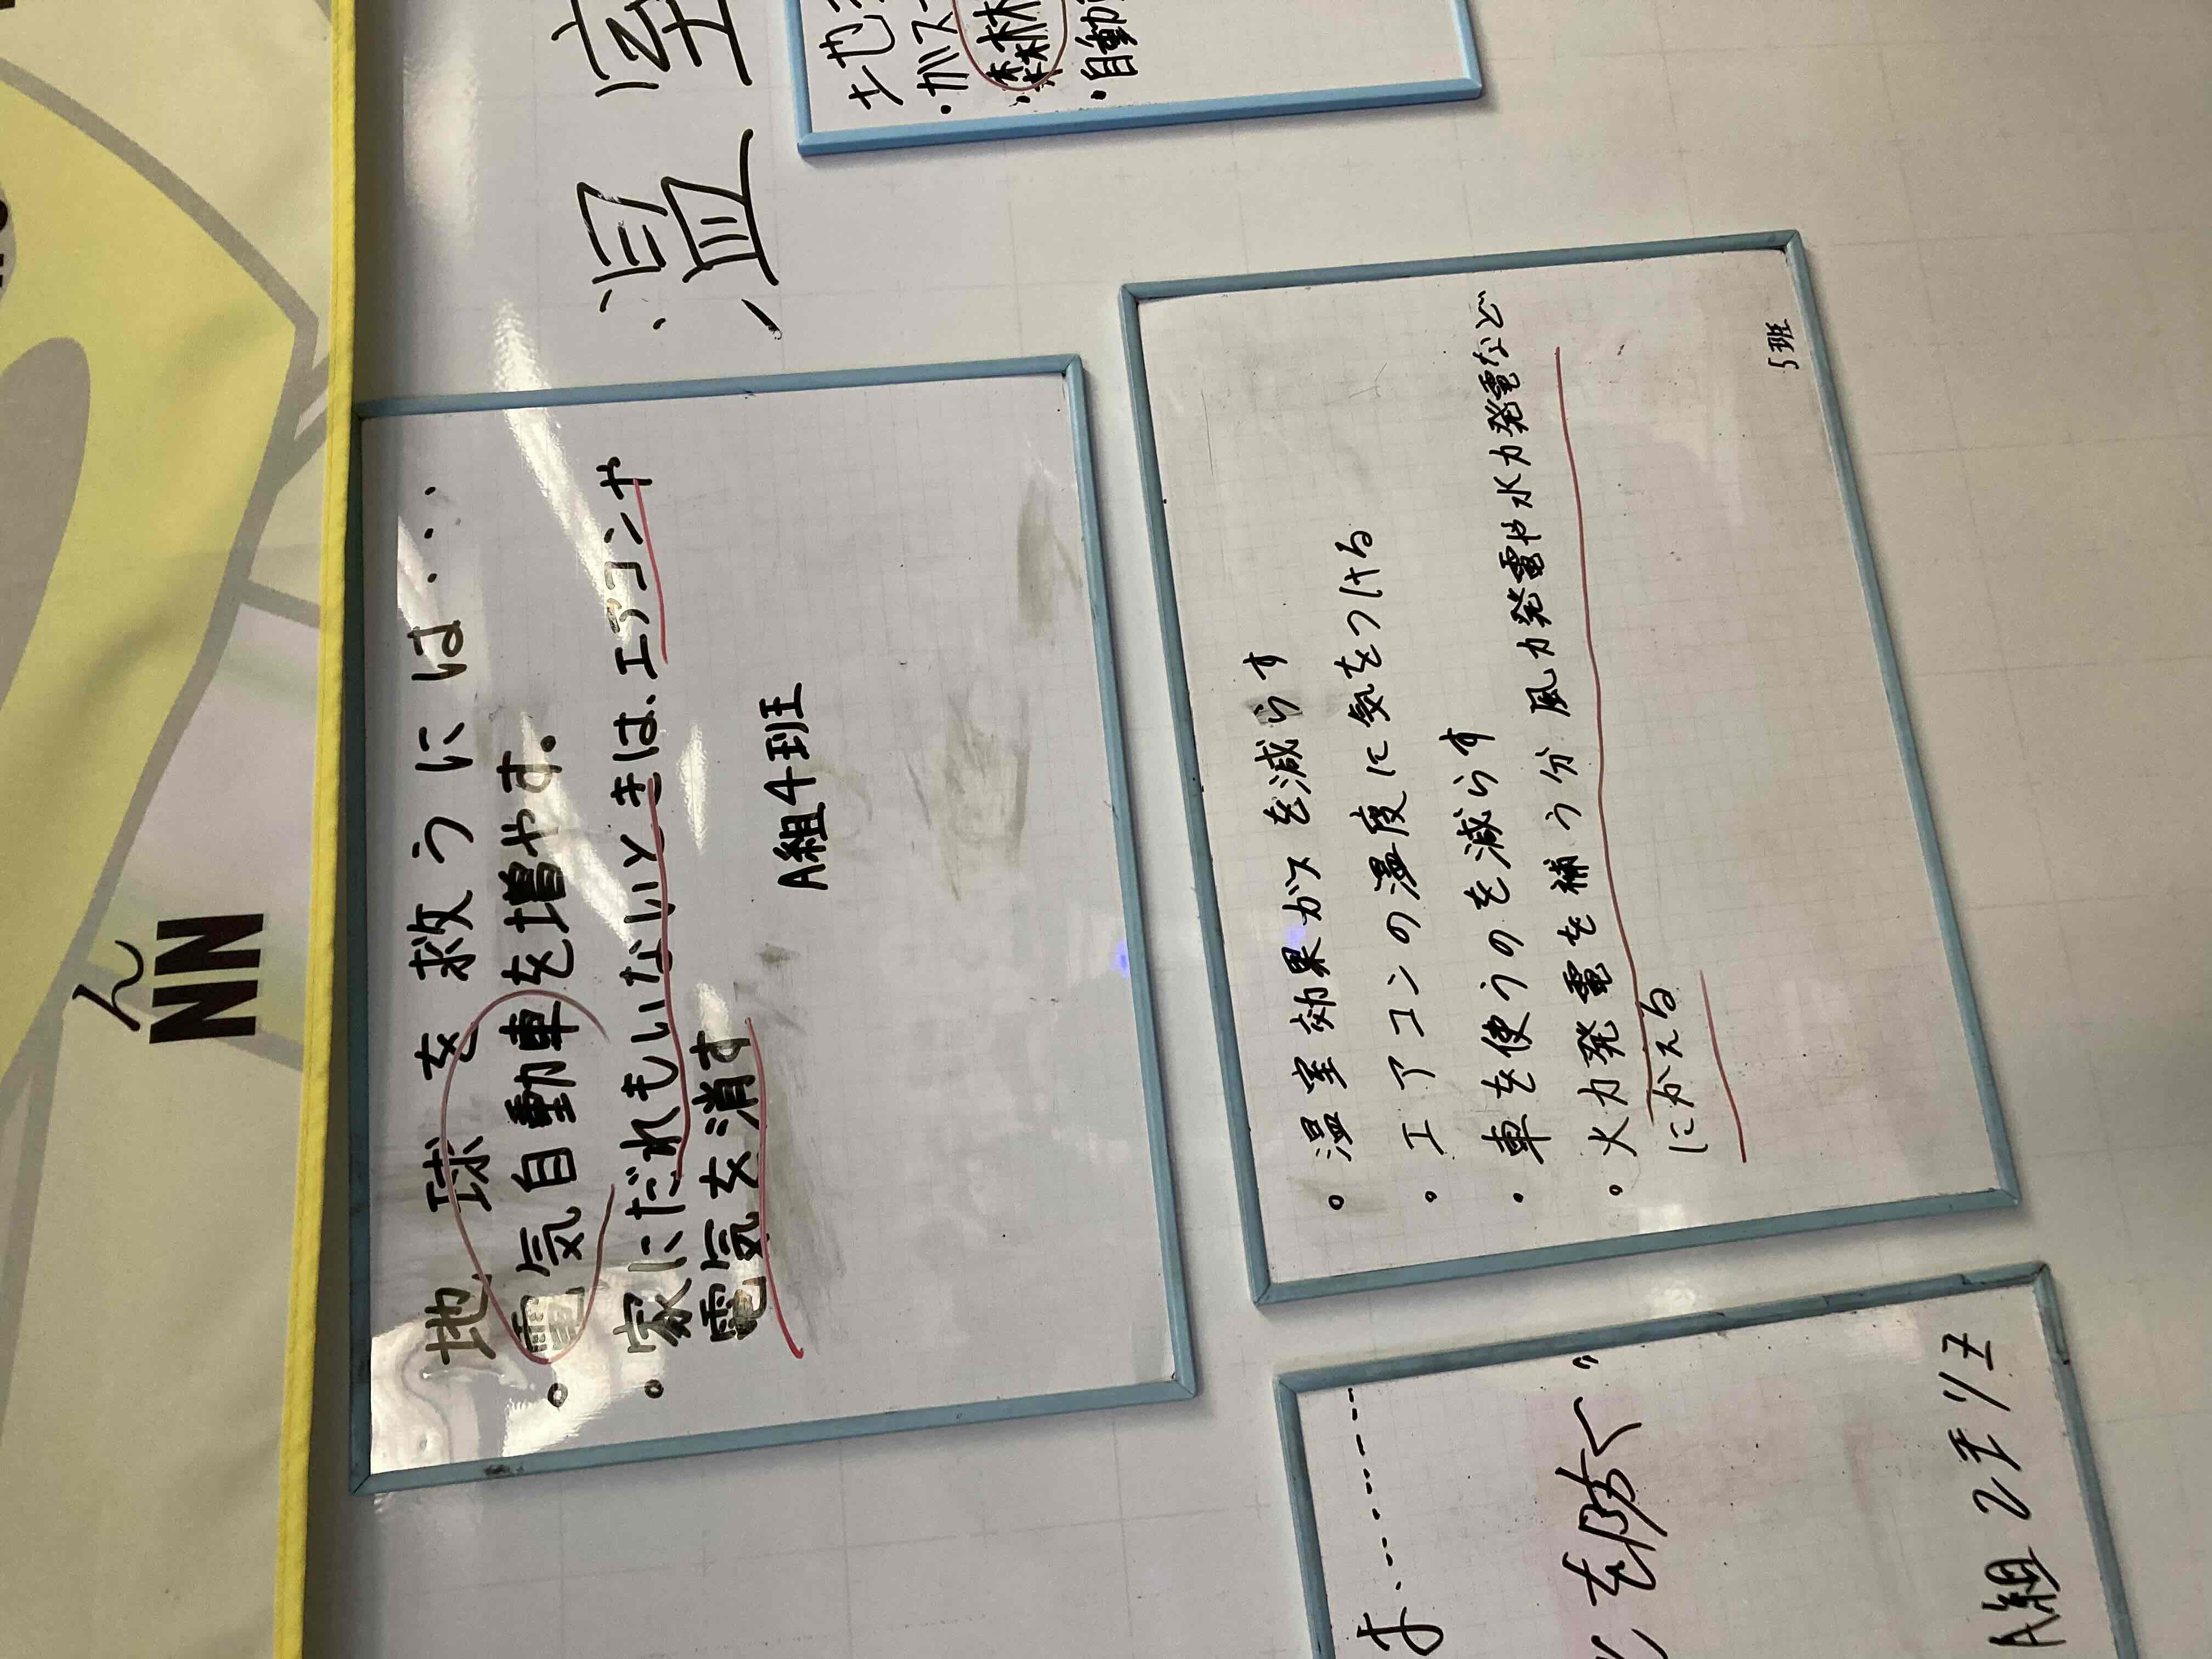 ん
NN
温室
地球を救うには・・・
・電気自動車を増やす。
・家にだれもいないときは、エアコンや
電気を消す
A組4班
・ガス
・森林
・自動
・温室効果ガスを減らす
・エアコンの温度に気をつける
・車を使うのを減らす
・火力発電を補う分 風力発電や水力発電など
にかえる
5班
を防ぐ"
A組 2班